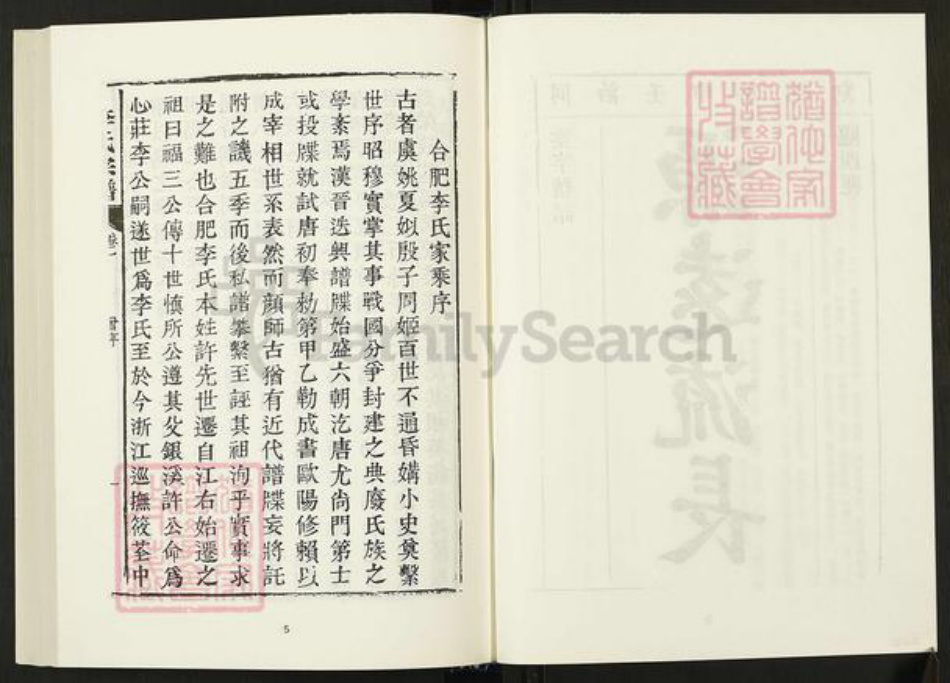 合肥李氏家乘序
古者虞姚夏姒殷子周姬百世不通昏媾小史奠繫
世序昭穆實掌其事戰國分爭封建之典廢氏族之
學紊焉漢晉迭興譜牒始盛六朝汔唐尤尚門第士
或投牒就試唐初奉勅第甲乙勒成書歐陽修賴以
成宰相世系表然而顏師古猶有近代譜牒妄將託
附之譏五季而後私譜攀繫至誣其祖洵乎實事求
是之難也合肥李氏本姓許先世遷自江右始遷之
祖曰福三公傳十世慎所公遵其父銀溪許公命為
心莊李公嗣遂世為李氏至於今浙江巡撫筱荃中
李氏宗譜 卷一
5
源遠流長
猶他家
譜學會
收藏
FamilySearch